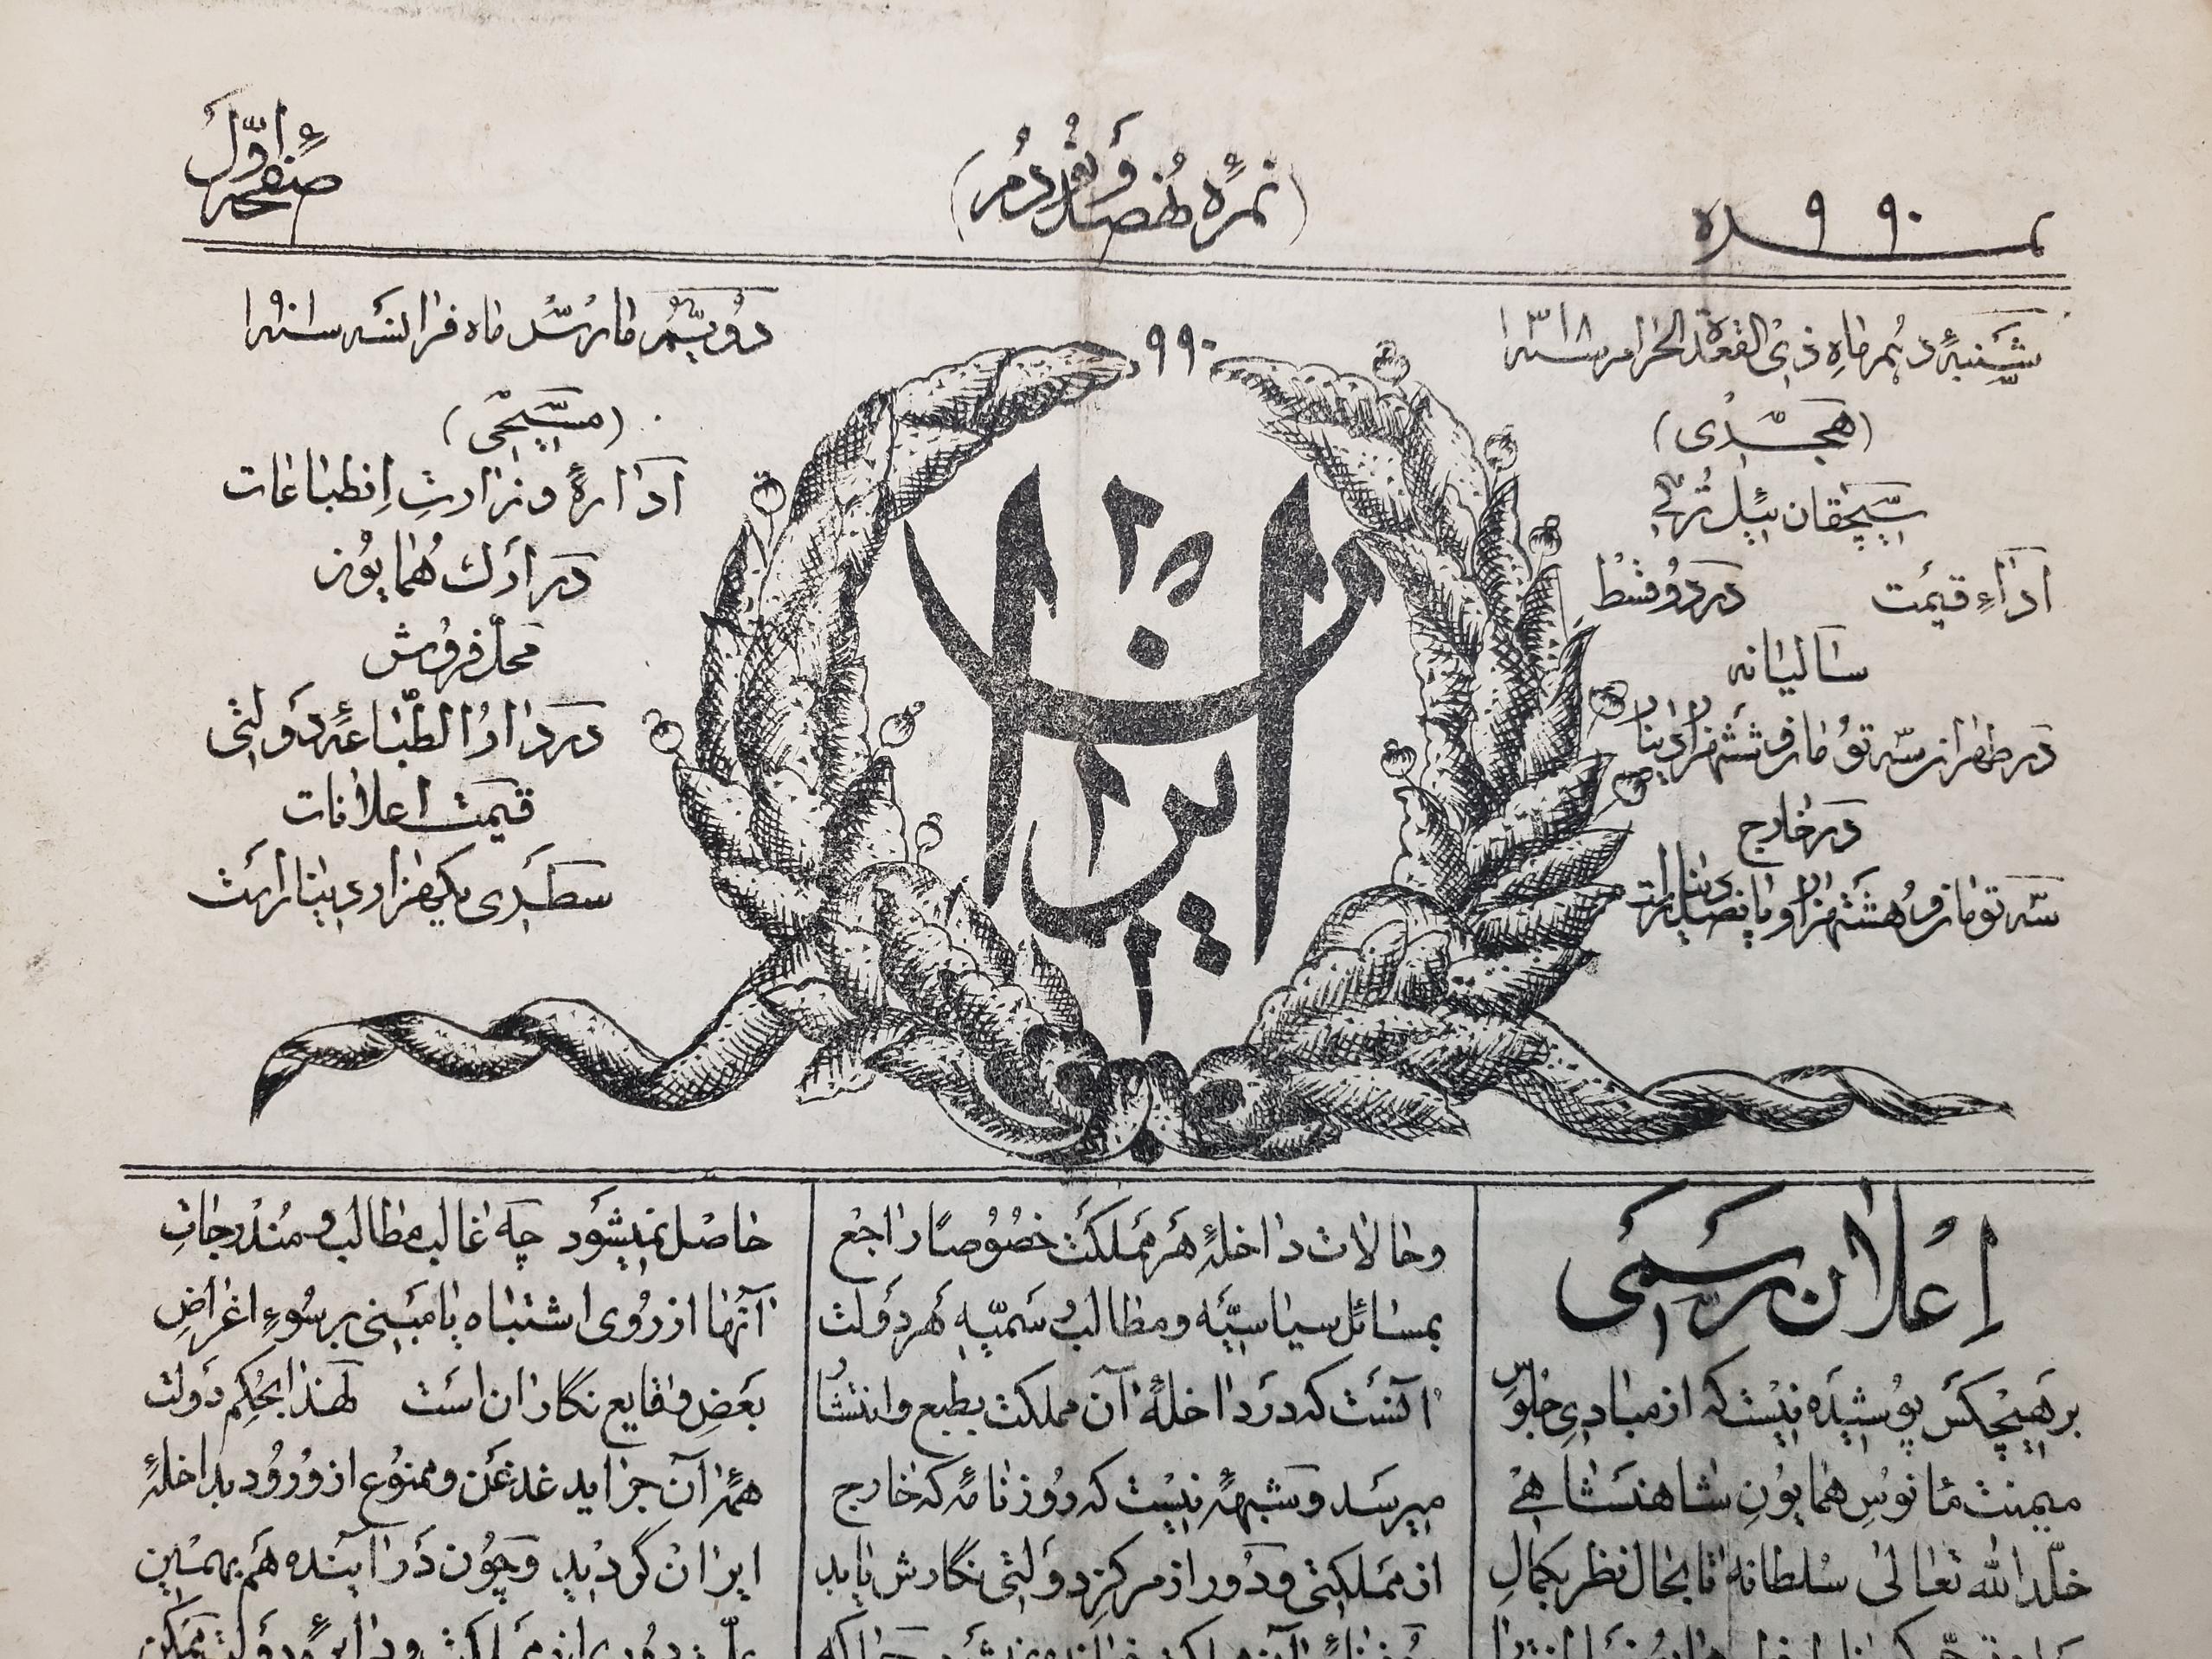 نمــ ۹۹۰ ــره
(نمرهٔ نهصد و نودم)
صفحهٔ اوّل
شنبهٔ دهم ماهِ ذی القعدة الحرام سنه ۱۳۱۸
(هجــری)
سیچقان ئیل ترکی
اداءِ قیمت در دو قسط
سالیانه
در طهران سه تومان و شش هزار دینار
در خارج
سه تومان و هشت هزار و پانصد دینار است
۹۹۰
ایران
دویّم مارس ماه فرانسه سنه ۱۹۰۱
(مسیحی)
ادارهٔ وزارتِ انطباعات
در ارک همایون
محل فروش
در دار الطّباعهٔ دولتی
قیمت اعلانات
سطری یکهزار دینار است
اِعلان رسمی
بر هیچکس پوشیده نیست که از مبادیِ جلوس
میمنت مأنوسِ همایونِ شاهنشاهی
خلّد الله تعالی سلطانه تا بحال نظر بکمالِ
و حالات داخلهٔ هر مملکت خصوصاً راجع
بمسائل سیاسیّه و مطالب رسمیّه هر دولت
آنست که در داخلهٔ آن مملکت بطبع و انتشار
میرسد و شبهه نیست که روزنامهٔ که خارج
از مملکتی و دور از مرکزِ دولتی نگارش یابد
حاصل نمیشود چه غالب مطالب و مندرجاتِ
آنها از روی اشتباه یا مبنی بر سوءِ اغراضِ
بعض وقایع نگاران است لهذا بحکم دولت
همهٔ آن جراید غدغن و ممنوع از ورود بداخلهٔ
ایران گردید و چون در آینده هم بهمین